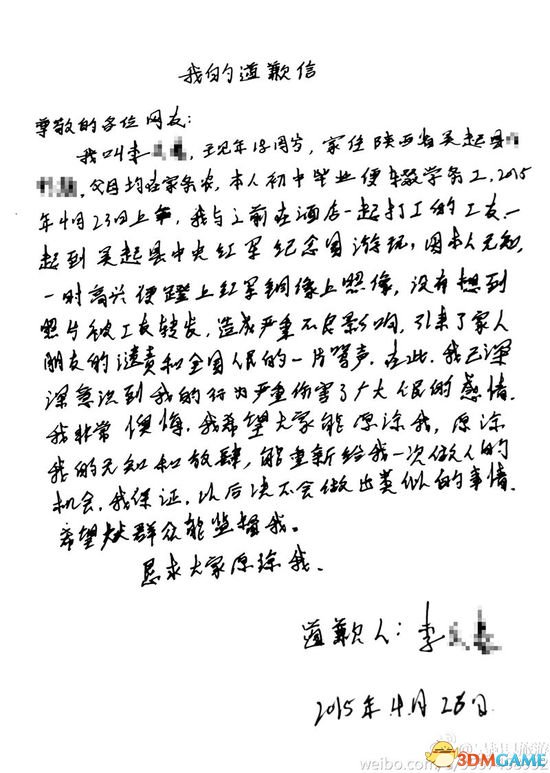 我的道歉信
尊敬的各位网友:
我叫李，现年18周岁，家住陕西省吴起县
，父母均在家务农，本人初中毕业便辍学务工，2015
年4月23日上午，我与之前在酒店一起打工的工友一
起到吴起县中央红军纪念园游玩，因本人无知，
一时高兴便蹬上红军铜像上照像，没有想到
照片被工友转发，造成严重不良影响，引来了家人
朋友的谴责和全国人民的一片骂声，在此，我已深
深意识到我的行为严重伤害了广大人民的感情，
我非常懊悔，我希望大家能原谅我，原谅
我的无知和放肆，能重新给我一次做人的
机会，我保证，以后决不会做出类似的事情，
希望大群众能监督我。
恳求大家原谅我.
道歉人：李
2015年4月26日
weibo.com
3DMGAME